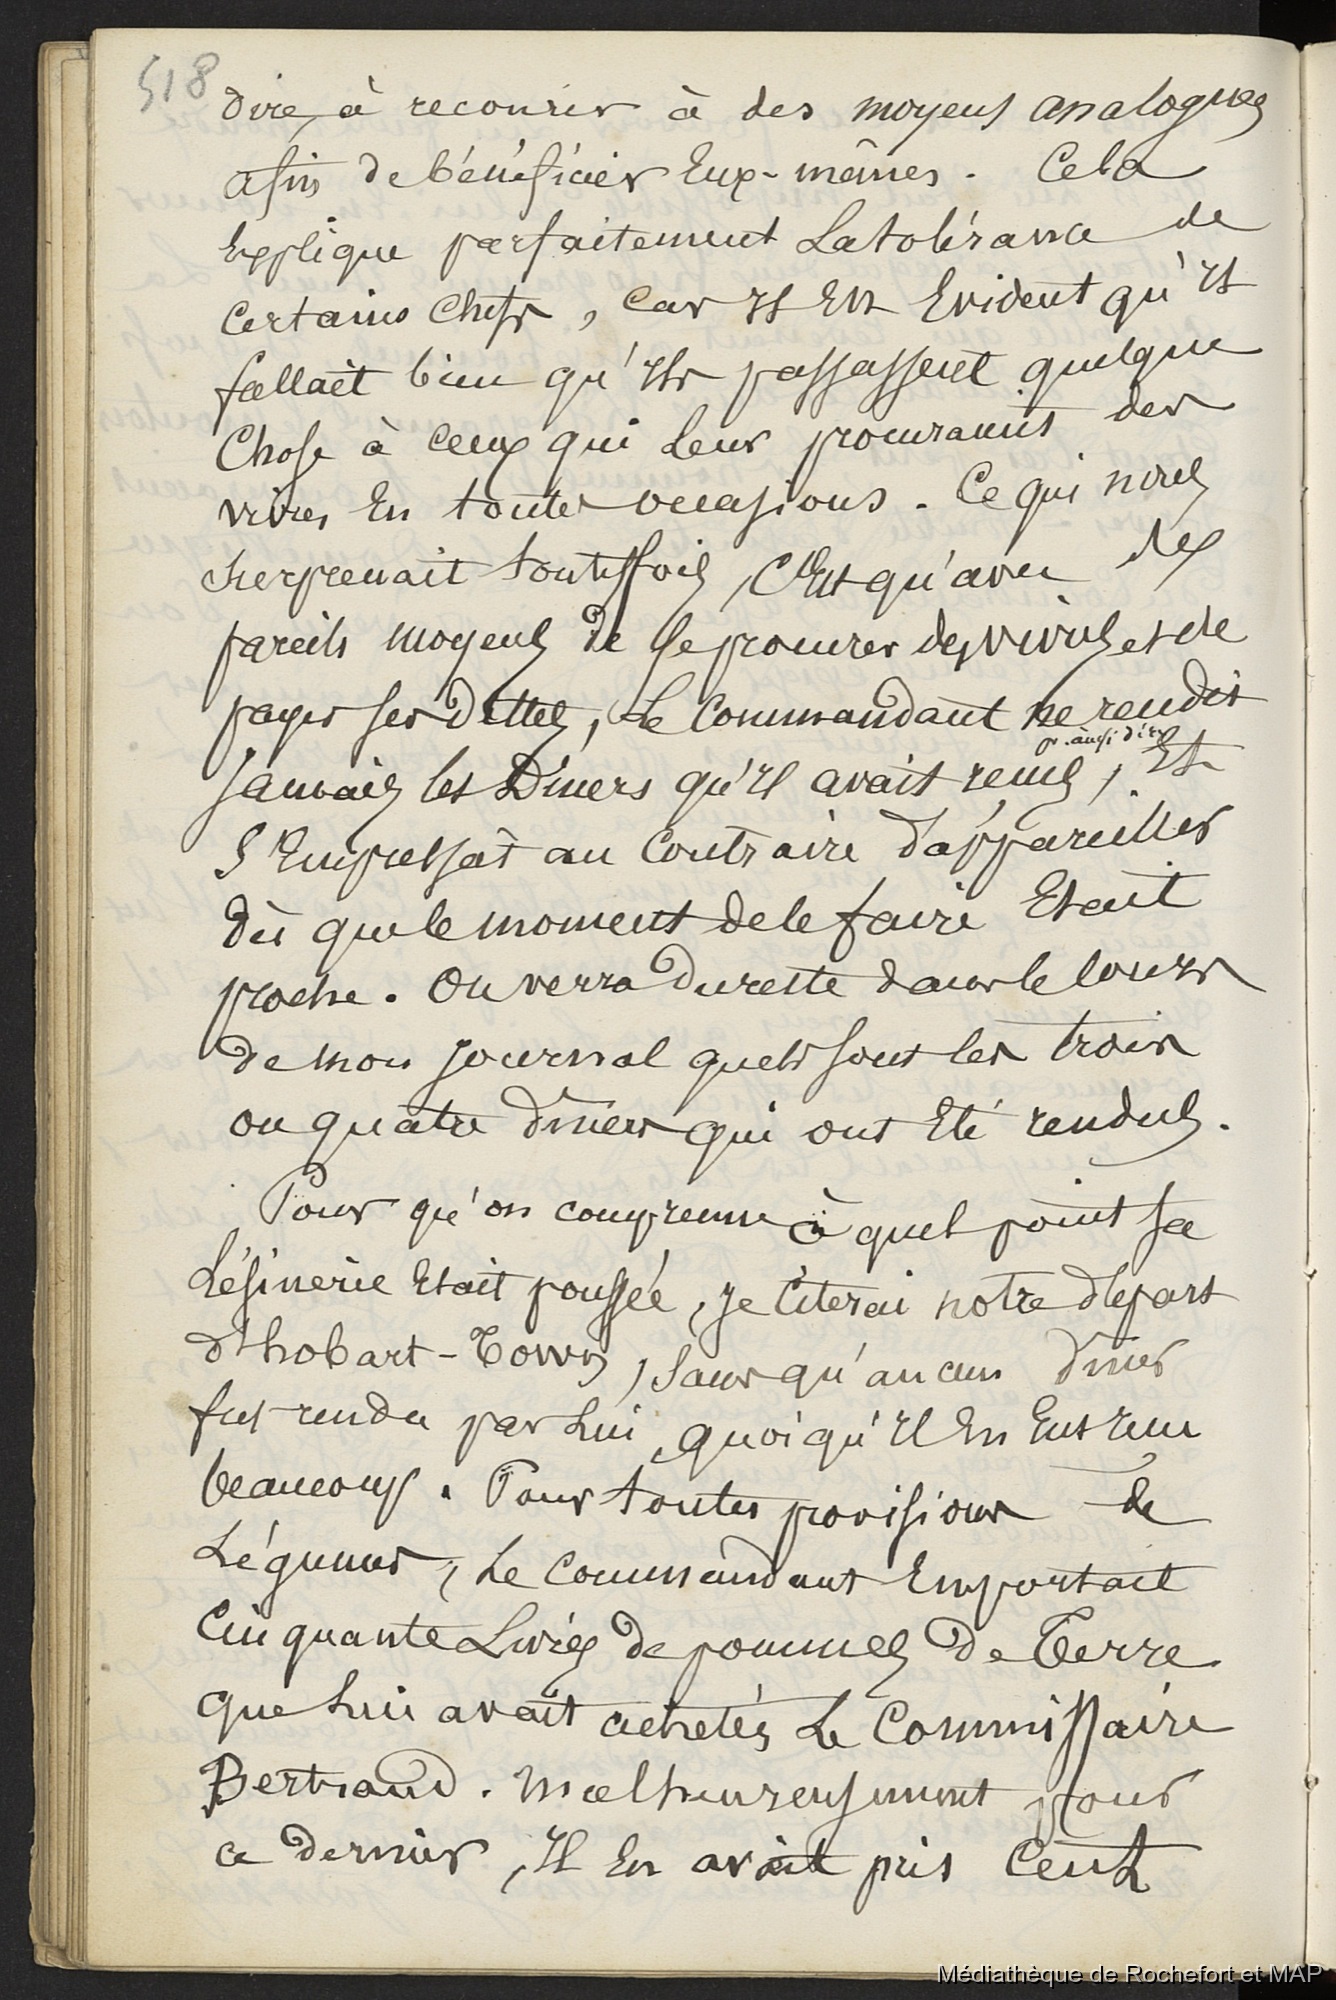 518
dire, à recourir à des moyens analogues
afin de bénéficier Eux-mêmes. Cela
Explique parfaitement La tolérance de
certains chefs, car Il Est Evident qu'Il
fallait bien qu'Ils passassent quelque
Chose à ceux qui Leur procuraient des
vivres En toutes occasions. Ce qui nous
surprenait toutefois, C'Est qu'avec des
pareils moyens de se procurer des vivres et de
payer ses Dettes, Le Commandant ne rendit
p. ainsi dire
Jamais les Diners qu'Il avait reçus, Et
S'Empressat au Contraire d'appareiller
dès que le moment de le faire Etait
proche. On verra du reste dans le cours
de mon Journal quels sont les trois
ou quatre diners qui ont Eté rendus.
Pour qu'on comprenne à quel point sa
Lésinerie Etait poussée, Je Citerai notre départ
d'hobart-Town, sans qu'aucun diner
fut rendu par Lui, quoiqu'Il En Eut reçu
beaucoup. Pour toutes provisions de
Légumes, Le Commandant Emportait
Cinquante Livres de pommes De Terre
que Lui avait achetés Le Commissaire
Bertrand. Malheureusement pour
ce dernier, Il En avait pris Cent
Médiathèque de Rochefort et MAP